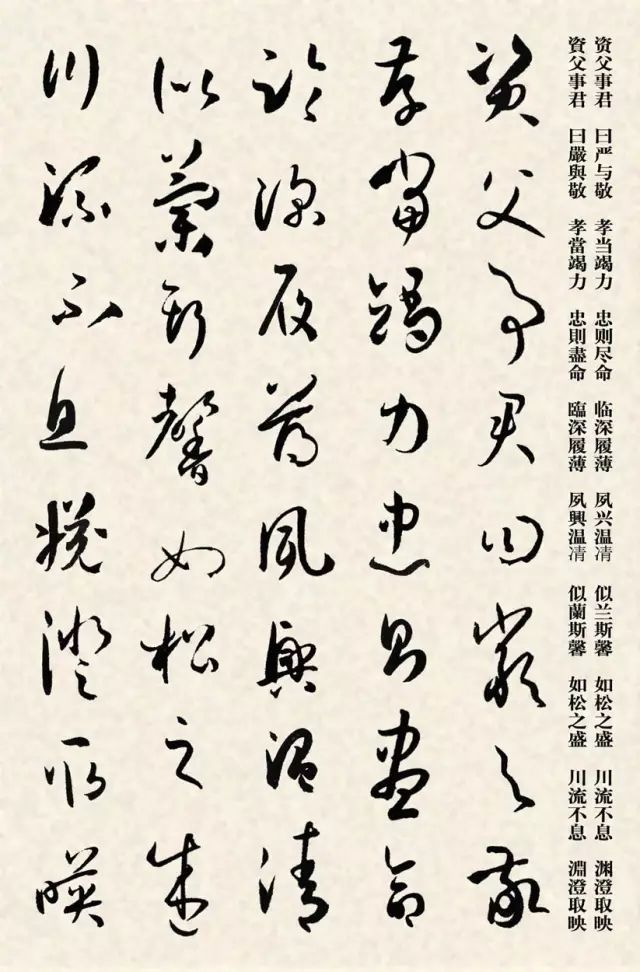 资父事君 曰严与敬 孝当竭力 忠则尽命 临深履薄 夙兴温凊 似兰斯馨 如松之盛 川流不息 渊澄取映
資父事君 曰嚴與敬 孝當竭力 忠則盡命 臨深履薄 夙興温凊 似蘭斯馨 如松之盛 川流不息 淵澄取映
資父事君曰嚴与敬
孝當竭力忠則盡命
臨深履薄夙興温清
似蘭斯馨如松之盛
川流不息淵澄取暎